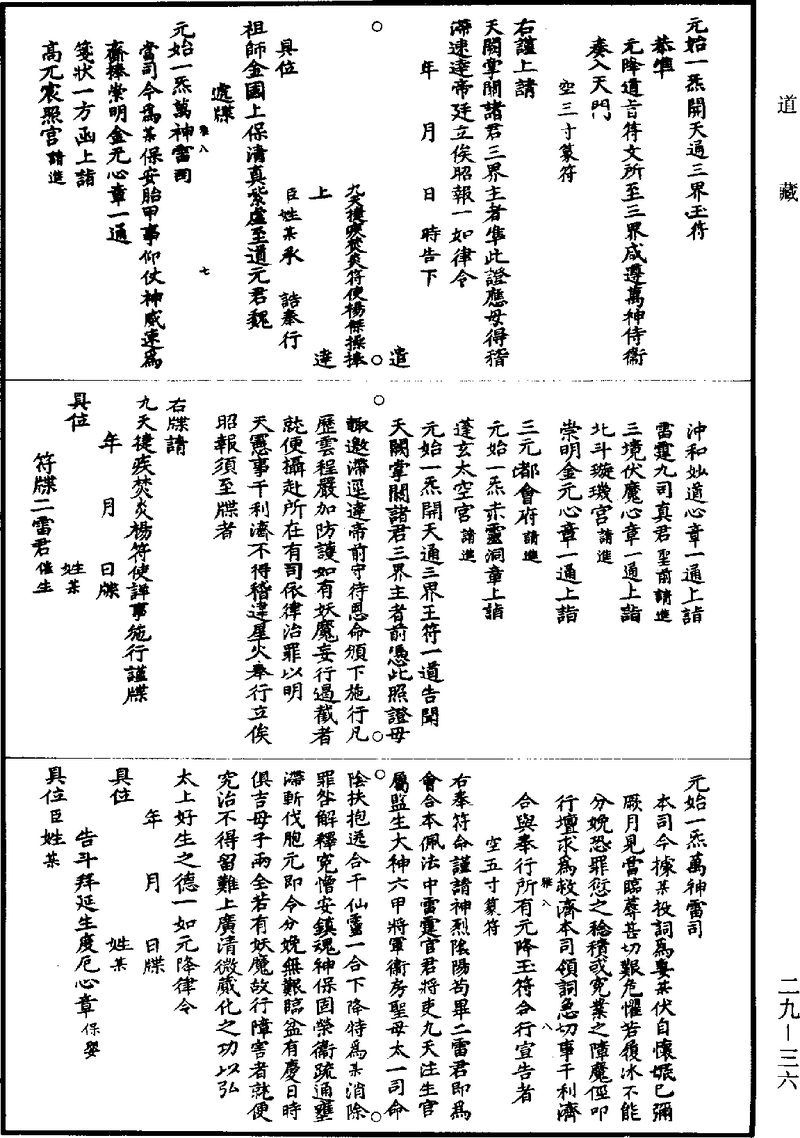 道藏
元始一炁開天通三界玉符
恭準
元降道旨符文所至三界咸遵萬神侍衛
奏入天門
空三寸篆符
右謹上請
天闕掌闕諸君三界主者準此證應毋得稽
滯速達帝廷立俟昭報一如律令
年 月 日 時告下
九天㨗疾焚炎符使楊傑操捧
上 達
具位 臣姓某承 誥奉行
祖師金國上保清真紫虛至道元君魏
遞牒
元始一炁萬神雷司 雅八 七
當司今為某保安胎甲事仰仗神威速為
齎捧崇明金元心章一通
箋狀一方函上詣
高元宸照宫請進
沖和妙道心章一通上詣
雷霆九司真君聖前請進
三境伏魔心章一通上詣
北斗璇璣宫請進
崇明金元心章一通上詣
三元都會府請進
元始一炁赤靈洞章上詣
蓬玄太空宫請進
元始一炁開天通三界玉符一道告聞
天闕掌關諸君三界主者前憑此照證毋
輒邀滯逕達帝前守待恩命頒下施行凡
歷雲程嚴加防護如有妖魔妄行遏截者
就便攝赴所在有司依律治罪以明
天憲事干利濟不得稽違星火奉行立俟
昭報須至牒者
右牒請
九天㨗疾焚炎楊符使詳事施行謹牒
年 月 日牒
具位 姓某
符牒二雷君催生
元始一炁萬神雷司
本司今據某投詞為妻某伏自懷娠已彌
厥月見當臨蓐甚切艱危懼若履冰不能
分娩恐罪愆之稔積或寃業之障魔俓叩
行壇求為救濟本司領詞急切事干利濟
合與奉行所有元降玉符合行宣告者
雅八 八
空五寸篆符
右奉符命謹請神烈陰陽苟畢二雷君即為
會合本佩法中雷霆官君將吏九天注生官
屬監生大神六甲將軍衛房聖母太一司命
陰扶抱送合千仙靈一合下降特為某消除
罪咎解釋寃憎安鎮魂神保固榮衛疏通壅
滯斬伐胞元即令分娩無艱臨盆有慶日時
俱吉母子兩全若有妖魔故行障害者就便
究治不得留難上廣清微藏化之功以弘
太上好生之德一如元降律令
年 月 日牒
具位 姓某
告斗拜延生度厄心章保嬰
具位臣姓某
二九—三六